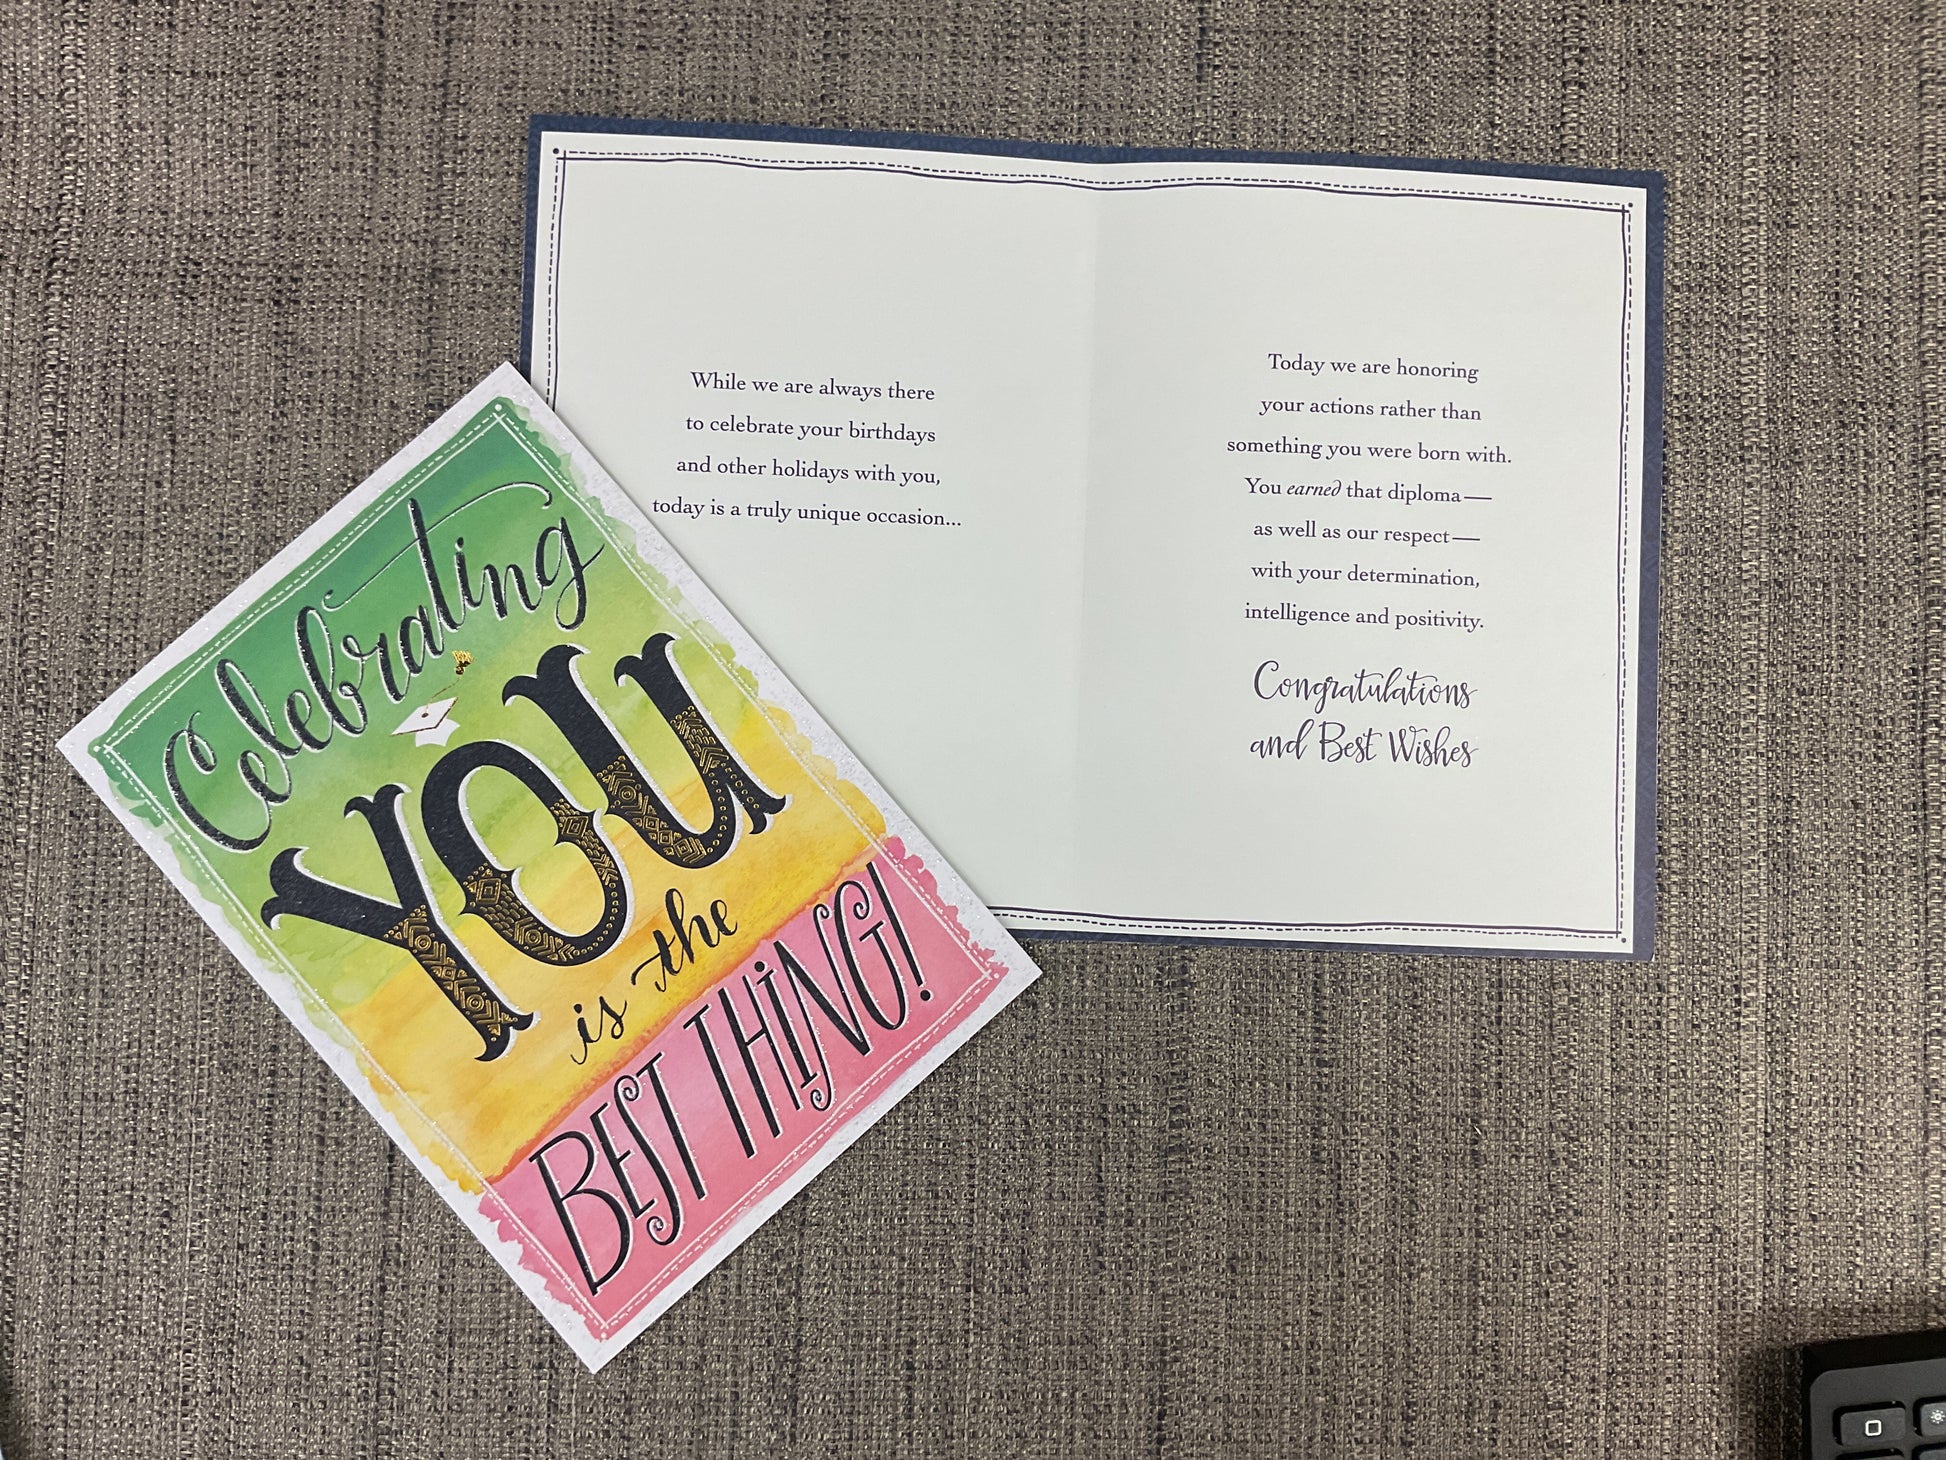 Celebrating
YOU
is the
BEST THING!
While we are always there
to celebrate your birthdays
and other holidays with you,
today is a truly unique occasion...
Today we are honoring
your actions rather than
something you were born with.
You earned that diploma—
as well as our respect—
with your determination,
intelligence and positivity.
Congratulations
and Best Wishes